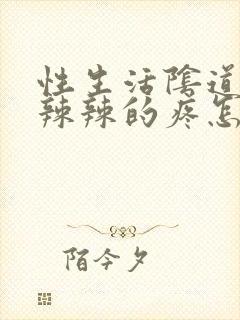 性生活陰道
辣辣的疼怎
陌今夕